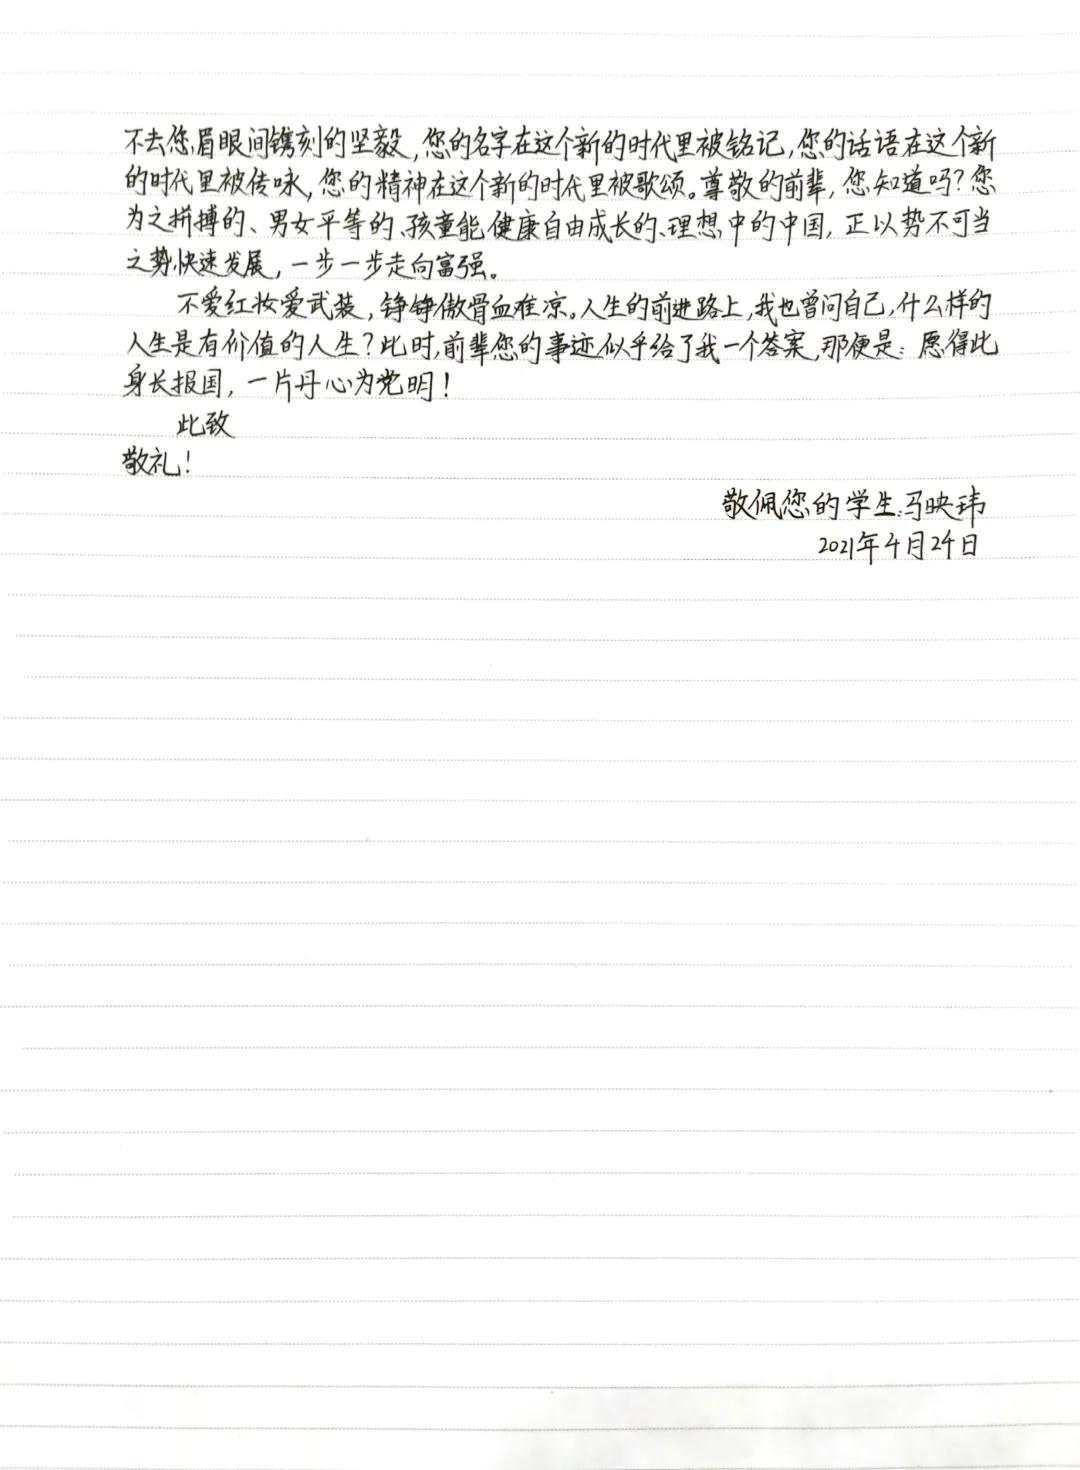 不去您眉眼间镌刻的坚毅,您的名字在这个新的时代里被铭记,您的话语在这个新
的时代里被传咏,您的精神在这个新的时代里被歌颂。尊敬的前辈,您知道吗?您
为之拼搏的、男女平等的、孩童能健康自由成长的、理想中的中国,正以势不可当
之势快速发展,一步一步走向富强。
不爱红妆爱武装,铮铮傲骨血难凉。人生的前进路上,我也曾问自己,什么样的
人生是有价值的人生?此时,前辈您的事迹似乎给了我一个答案,那便是:愿得此
身长报国,一片丹心为党明!
此致
敬礼!
敬佩您的学生:马映玮
2021年4月24日